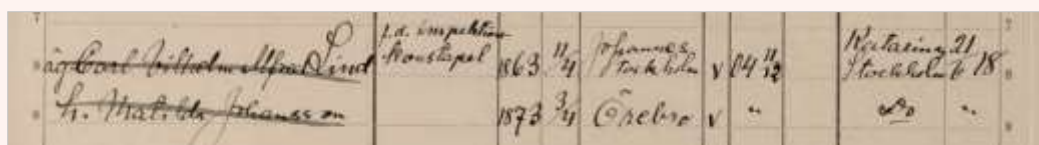 f.d. inspektion
äg Carl Vilhelm Alfred Lind konstapel 1863 11/4 Johannes Stockholm v 04 11/12 Katarina Stockholm 21/6 18
h. Matilda Johansson 1873 3/4 Örebro v " Do "